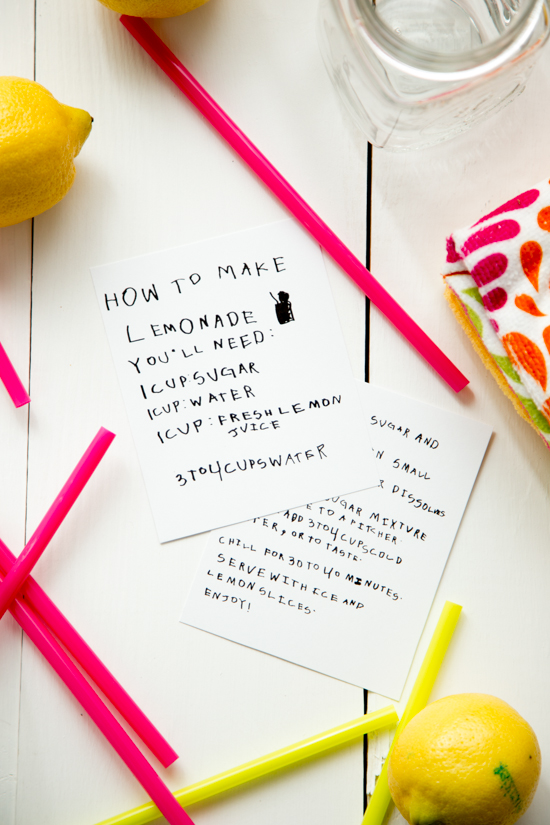 HOW TO MAKE
LEMONADE
YOU'LL NEED:
1 CUP: SUGAR
1 CUP: WATER
1 CUP: FRESH LEMON
JUICE
3 TO 4 CUPS WATER
SUGAR AND
SMALL
DISSOLVS
SUGAR MIXTURE
TO A PITCHER.
ADD 3 TO 4 CUPS COLD
OR TO TASTE.
CHILL FOR 30 TO 40 MINUTES.
SERVE WITH ICE AND
LEMON SLICES.
ENJOY!